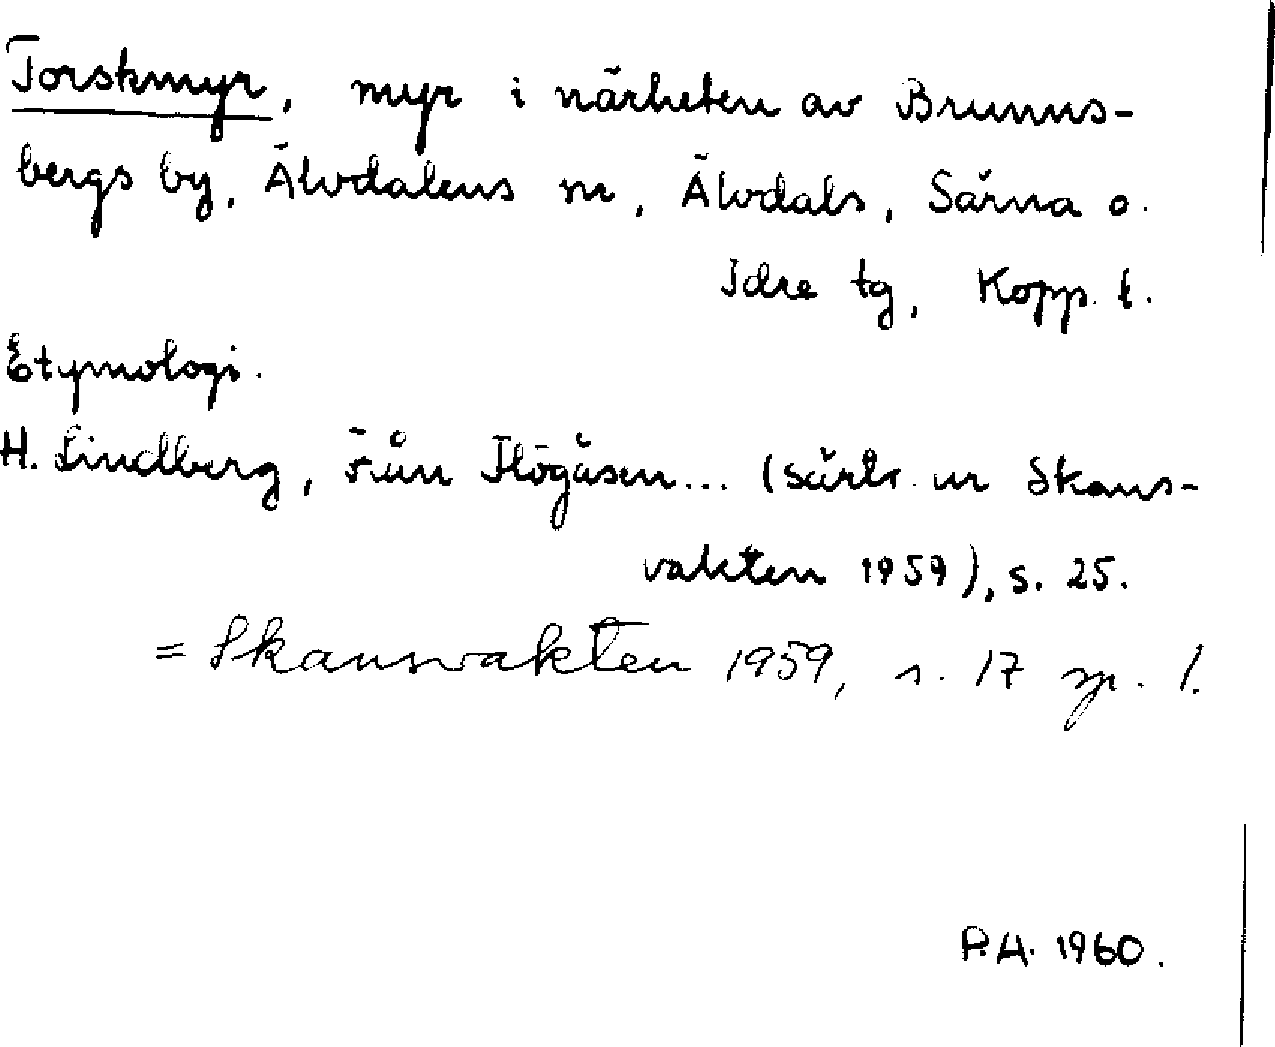 Torskmyr, myr i närheten av Brunns-
bergs by, Älvdalens sn, Älvdals, Särna o.
Idre tg, Kopp. l.
Etymologi.
H. Lindberg, Från Högåsen... (särtr. ur Skans-
vakten 1959), s. 25.
= Skansvakten 1959, s. 17 sp. 1.
P.H. 1960.